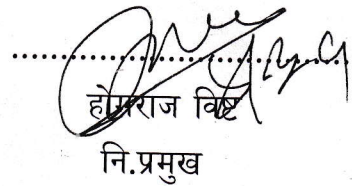 होमराज विष्ट
नि.प्रमुख